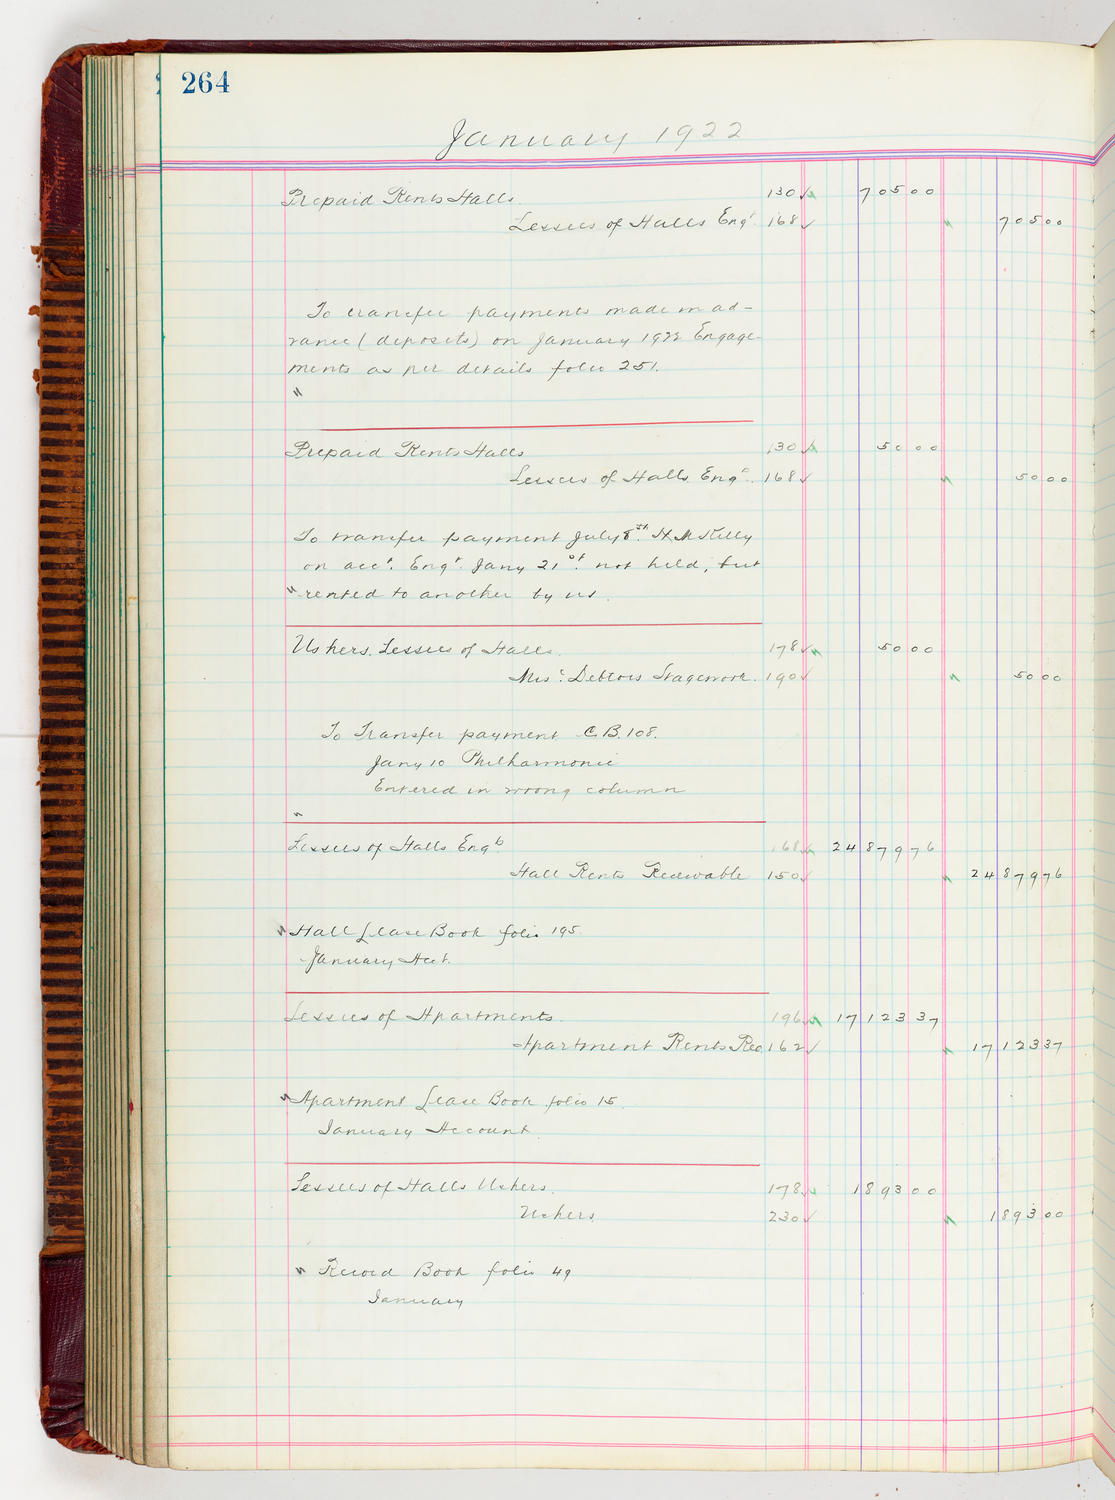 264
January 1922
Prepaid Rents Halls 130 705 00
Lessees of Halls Engt 168 705 00
To transfer payments made in ad-
vance (deposits) on January 1922 Engage-
ments as per details folio 251.
Prepaid Rents Halls 130 50 00
Lessees of Halls Engt. 168 50 00
To transfer payment July 8th. H. McKelly
on acct. Engt. Jany 21st. not held, but
rented to another by us.
Ushers. Lessees of Halls. 178 50 00
Misc. Debtors Stagework. 190 50 00
To Transfer payment C.B. 108.
Jany 10 Philharmonic
Entered in wrong column
Lessees of Halls Engts 168 24879 76
Hall Rents Receivable 150 24879 76
Hall Lease Book folio 195.
January Acct.
Lessees of Apartments. 196 17123 37
Apartment Rents Rec 162 17123 37
Apartment Lease Book folio 15.
January Account
Lessees of Halls Ushers. 178 1893 00
Ushers. 230 1893 00
Record Book folio 49
January